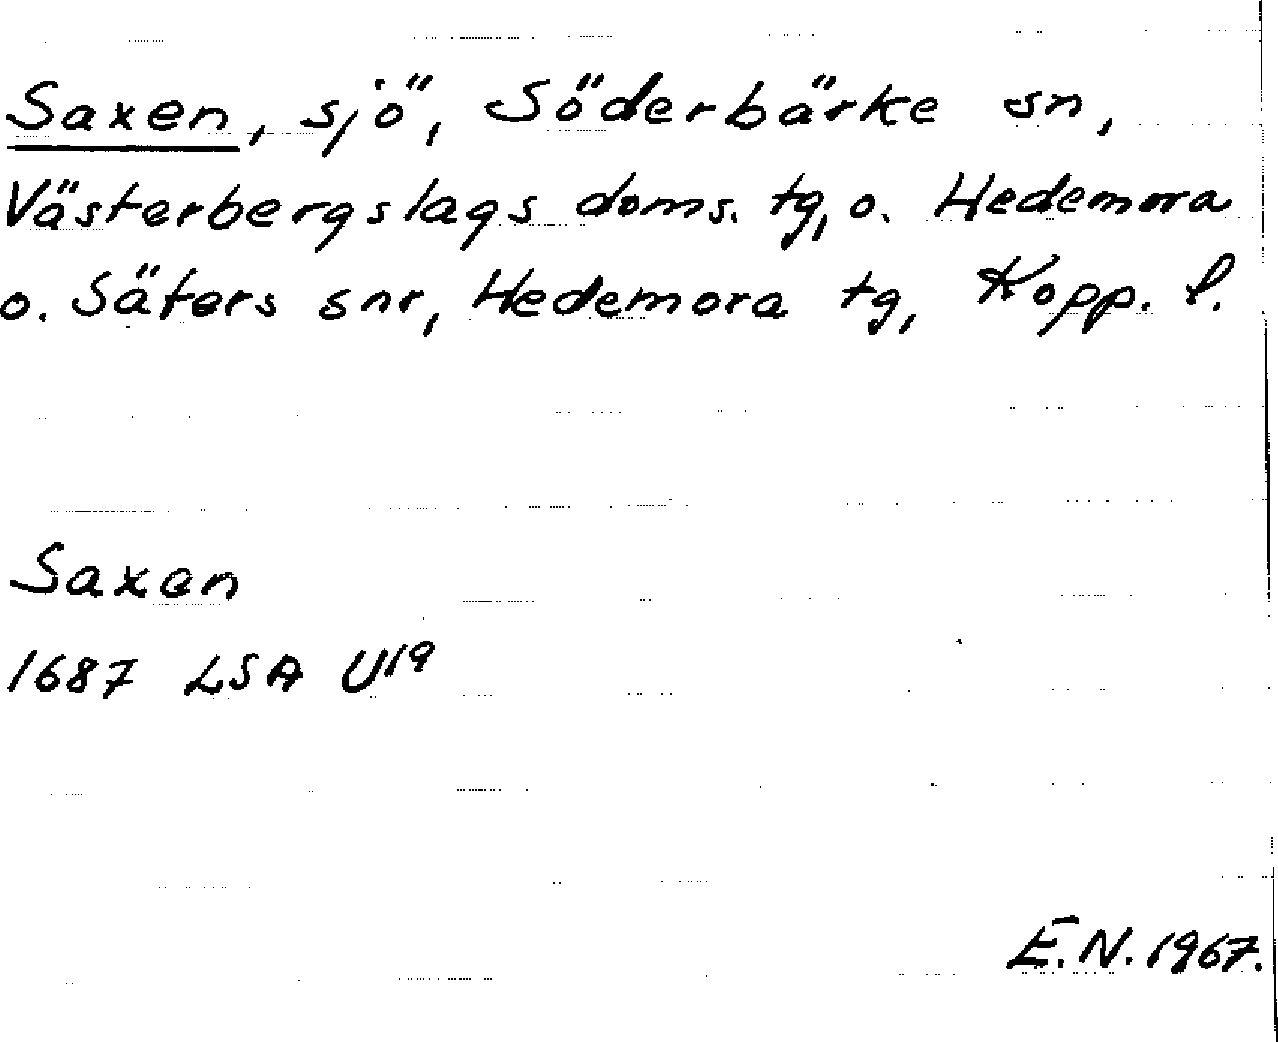 Saxen, sjö, Söderbärke sn,
Västerbergslags doms. tg, o. Hedemora
o. Säters snr, Hedemora tg, Kopp. l.
Saxen
1687 LSA U19
E.N. 1967.